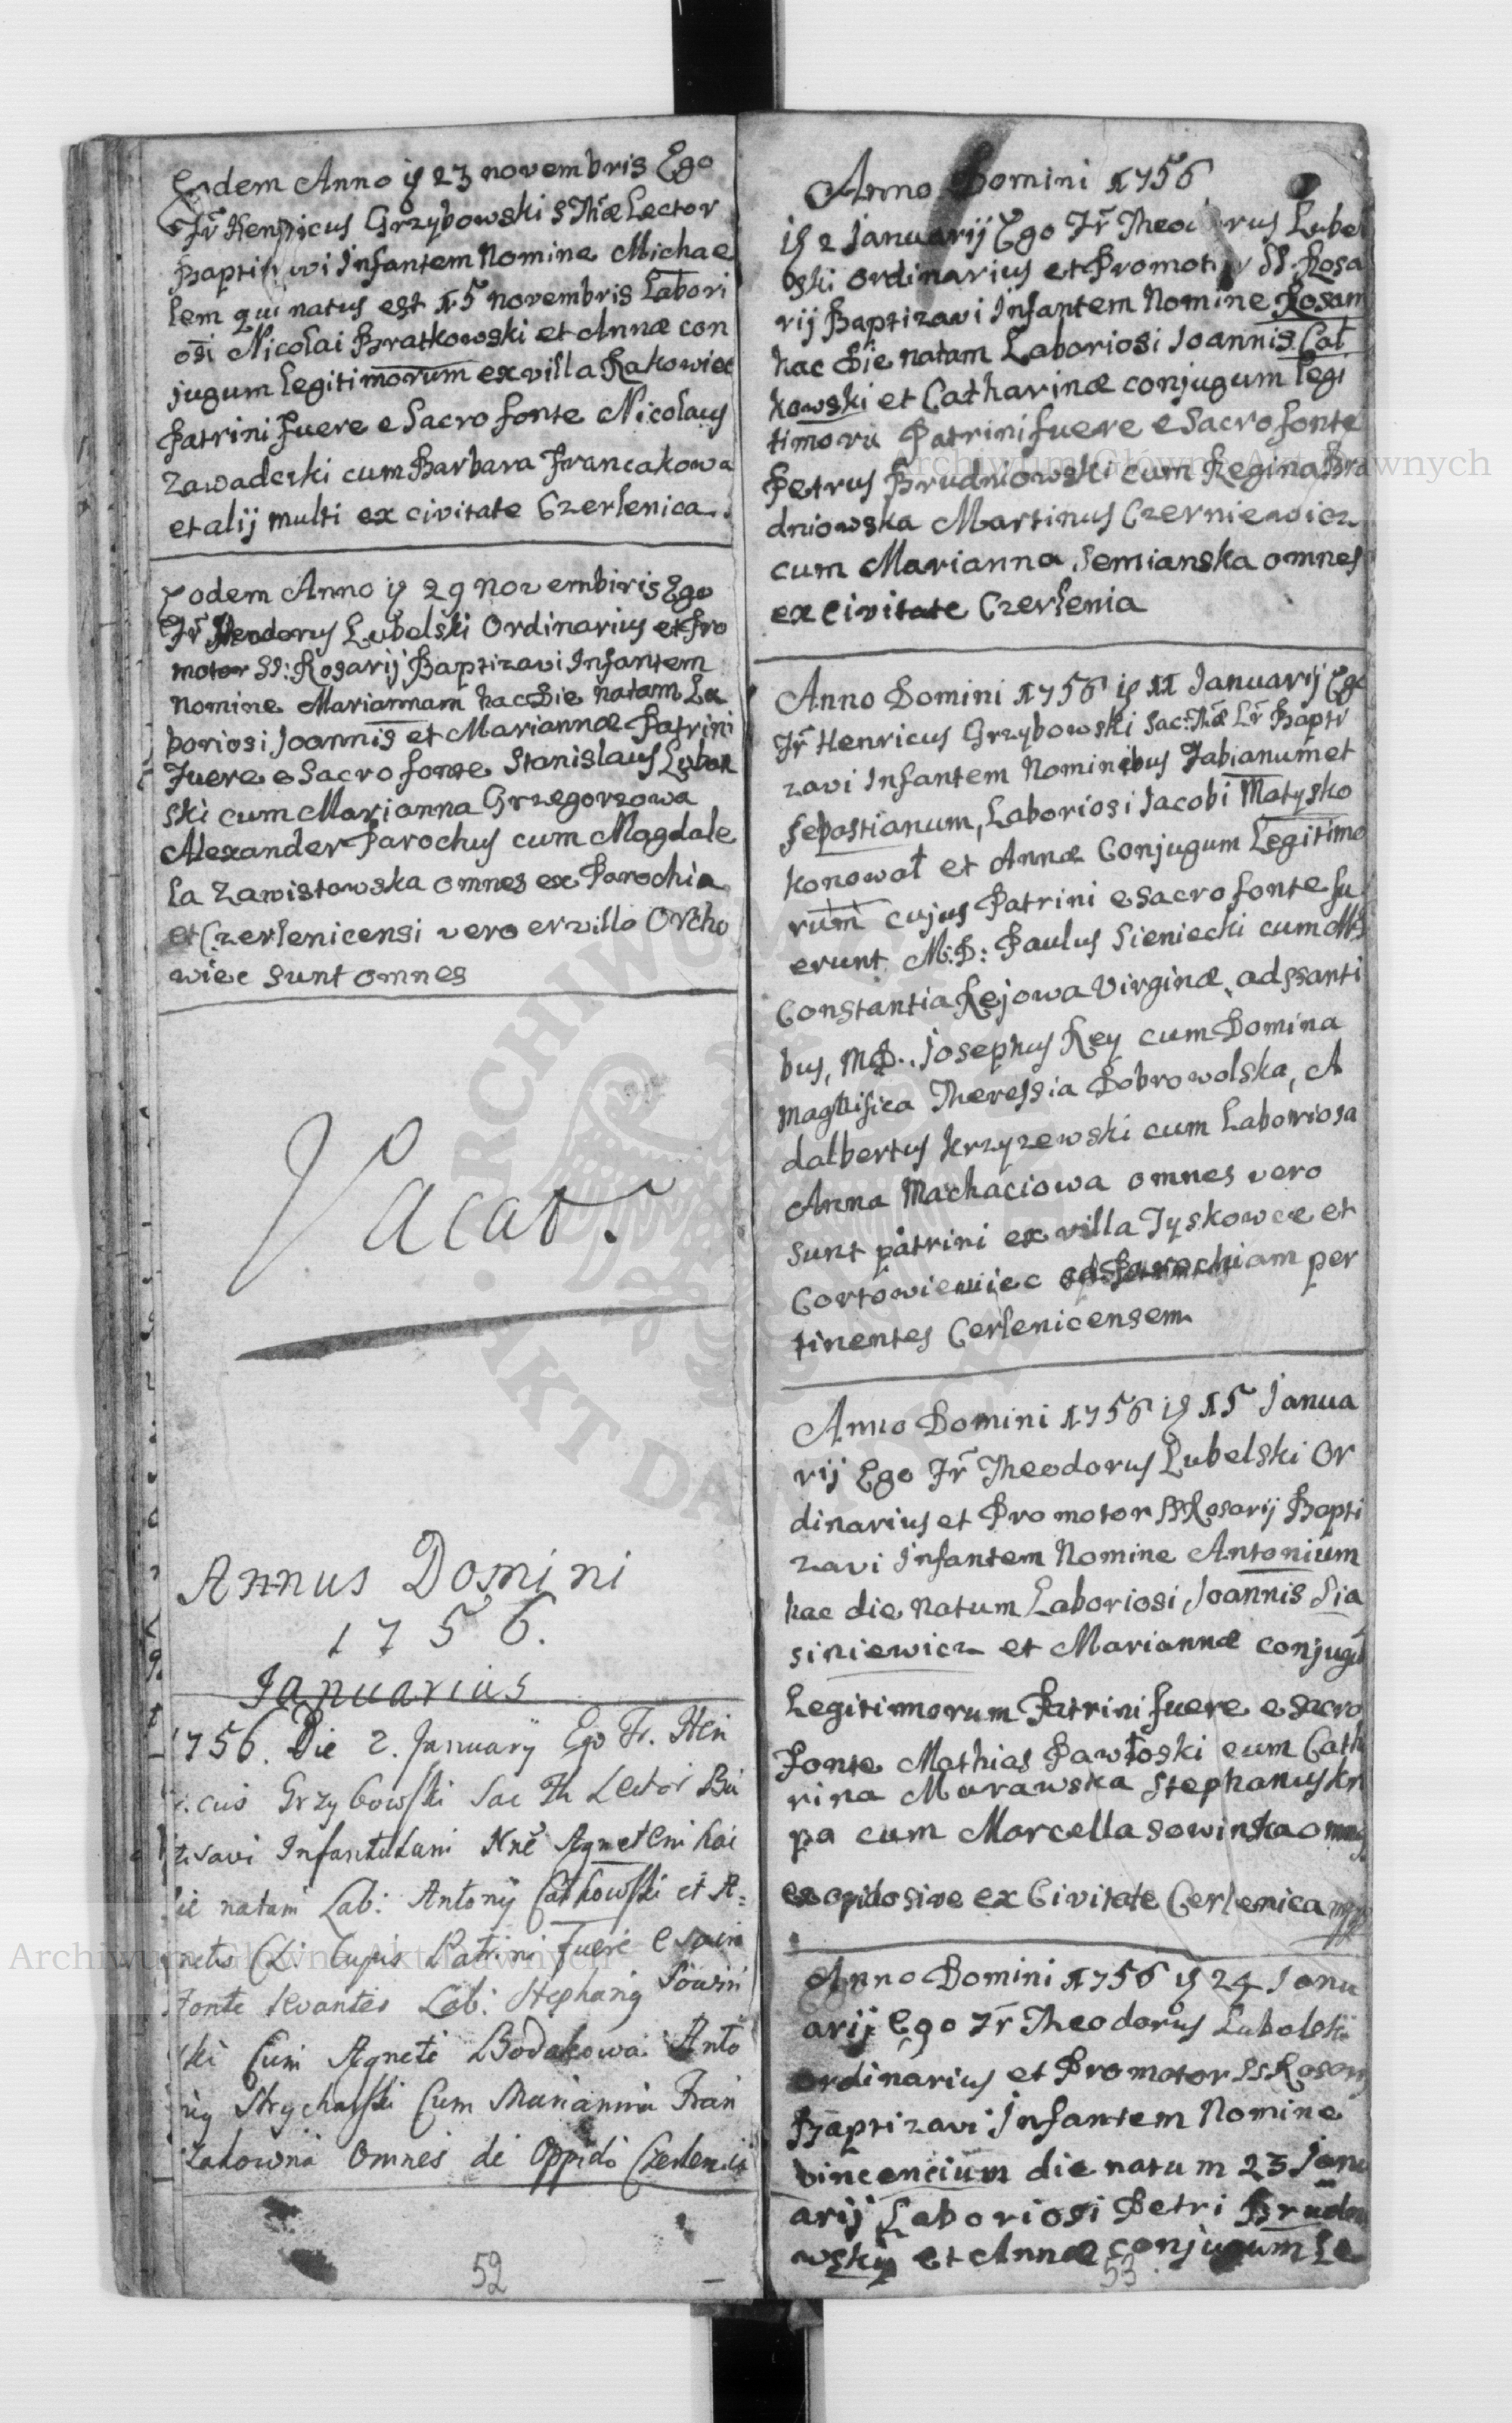 Eodem Anno is 23 novembris Ego
Fr Henricus Grzybowski S Thæ Lector
Baptizavi Infantem Nomine Michae
lem qui natus est 15 novembris Labori
osi Nicolai Bratkowski et Annæ con
jugum legitimorum ex villa Rakowiec
Patrini fuere e Sacro fonte Nicolaus
Zawadcki cum Barbara Francakowa
et alij multi ex civitate Czerlenica.
Eodem Anno is 29 Novembiris Ego
Fr Theodorus Lubelski Ordinarius et Pro
motor SS: Rosarij Baptizavi Infantem
Nomine Mariannam hac Die natam La
boriosi Joannis et Mariannæ Patrini
Fuere e Sacro fonte Stanislaus
ski cum Marianna Grzegorzowa
Alexander Parochus cum Magdale
la Zawistowska omnes ex Parochia
et Czerlenicensi vero ex villa Orcho
wiec sunt omnes
Vacat.
Annus Domini
1756.
Januarius
1756. Die 2. January Ego Fr. Hen
ricus Grzybowski Sac Th Lector Ba
tisavi Infantulam Nne Agnetem hac
die natam Lab: Antonij Catkowski et A=
gnetis CL cujus Patrini Fuere e Sacro
Fonte levantes Lab: Stephanus Sowin
ski Cum Agnete Bodakowa Anto
nius Strycharski Cum Marianna Fran
zakowna Omnes de Oppido Czerlenica
52
Anno Domini 1756
is 2 Januarij Ego Fr Theodorus Lubel
bski ordinarius et Promotor SS. Rosa
rij Baptizavi Infantem Nomine Rosam
hac Die natam Laboriosi Joannis Cat
kowski et Catharinæ conjugum legi
timoru Patrini fuere e Sacro fonte
Petrus Brudniowski cum Regina Bru
dniowska Martinus Czerniewicz
cum Marianna Semianska omnes
ex Civitate Czerlenia
Anno Domini 1756 is 11 Januarij Ego
Fr Henricus Grzybowski Sac: Thæ Lr Bapti
zavi Infantem Nominibus Fabianum et
Sebastianum, Laboriosi Jacobi Matysko
konował et Annæ Conjugum Legitimo
rum cujus Patrini e Sacro fonte fu
erunt M: D: Paulus Sieniecki cum M
Constantia Rejowa Virginæ, adssanti
bus, MD.. Josephus Rey cum Domina
Magnifica Theressia Dobrowolska, A
dalbertus Krzyzewski cum Laboriosa
Anna Machaciowa omnes vero
sunt patrini ex villa Tyskowce et
Cortowieniec ad Parochiam per
tinentes Cerlenicensem
Anno Domini 1756 is 15 Janua
rij Ego Fr Theodorus Lubelski Or
dinarius et Promotor SS Rosarij Bapti
zavi Infantem Nomine Antonium
hac die natum Laboriosi Joannis Sia
siniewicz et Mariannæ conjugu
Legitimorum Patrini fuere e Sacro
Fonte Mathias Pawłoski cum Cath
rina Morawska Stephanus Kr
pa cum Marcella Sowinska omnes
ex opido sive ex Civitate Cerlenica
Anno Domini 1756 is 24 Janu
arij Ego Fr Theodorus Lubolski
ordinarius et Promotor SS Rosary
Baptizavi Infantem Nomine
Vincencium die natum 23 Janu
arij Laboriosi Petri Brudnio
wskij et Annæ conjugum Le
53
Archiwum Główne Akt Dawnych
Archiwum Główne Akt Dawnych
ARCHIWUM
AKT DAWNYCH